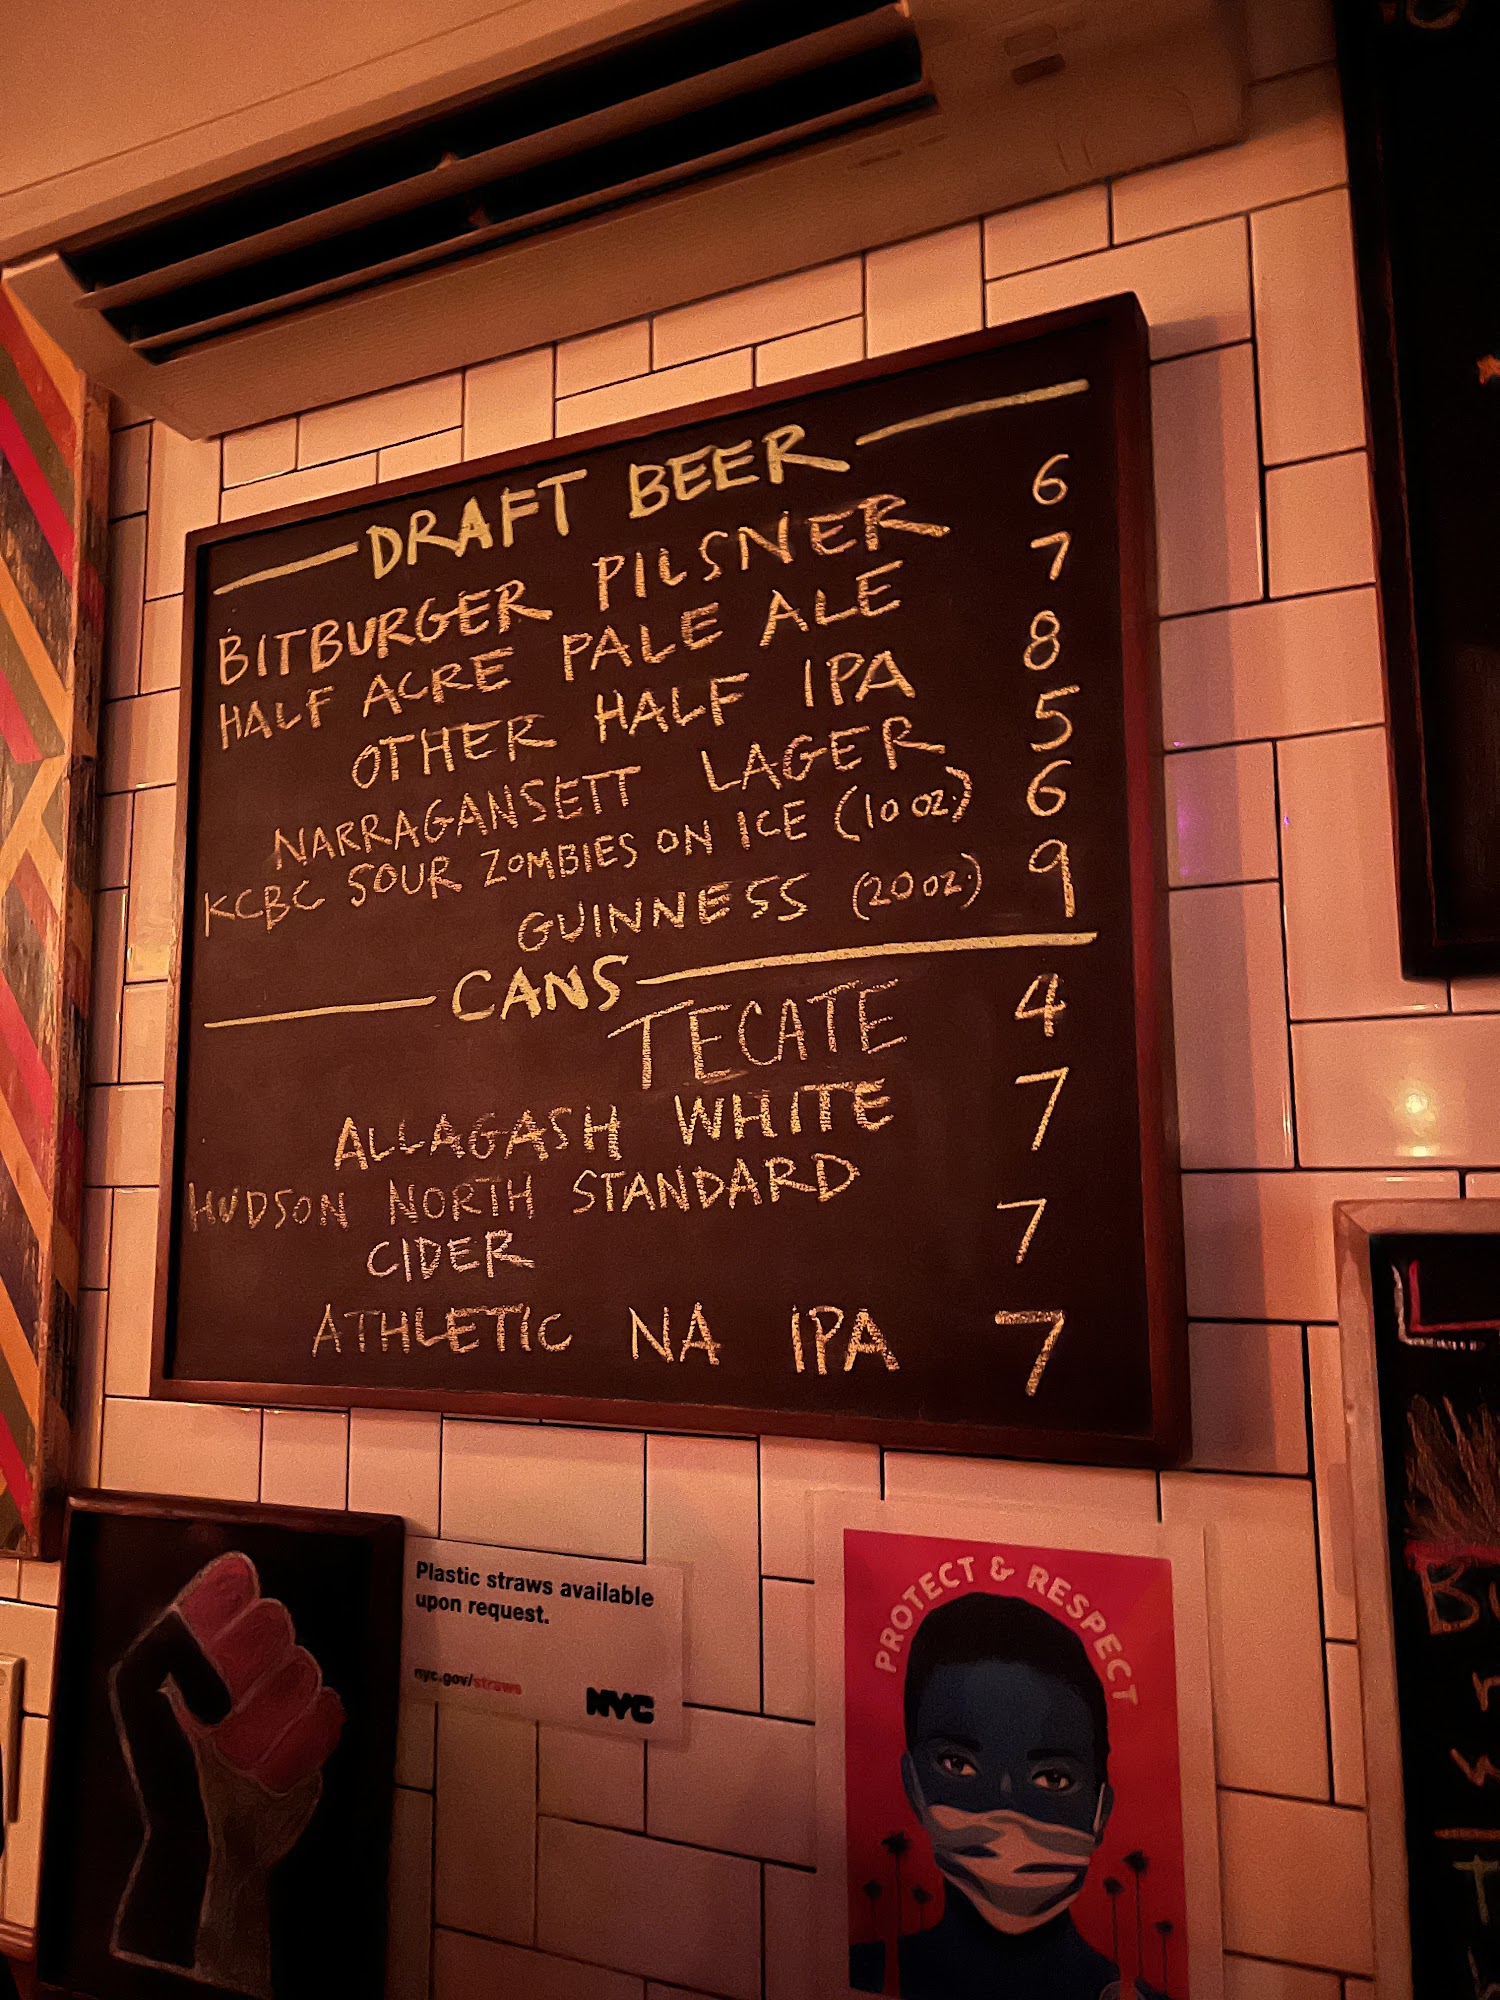 DRAFT BEER
BITBURGER PILSNER 6
HALF ACRE PALE ALE 7
OTHER HALF IPA 8
NARRAGANSETT LAGER 5
KCBC SOUR ZOMBIES ON ICE (10 oz.) 6
GUINNESS (20 oz.) 9
CANS
TECATE 4
ALLAGASH WHITE 7
HUDSON NORTH STANDARD
CIDER 7
ATHLETIC NA IPA 7
Plastic straws available
upon request.
nyc.gov/straws
NYC
PROTECT & RESPECT